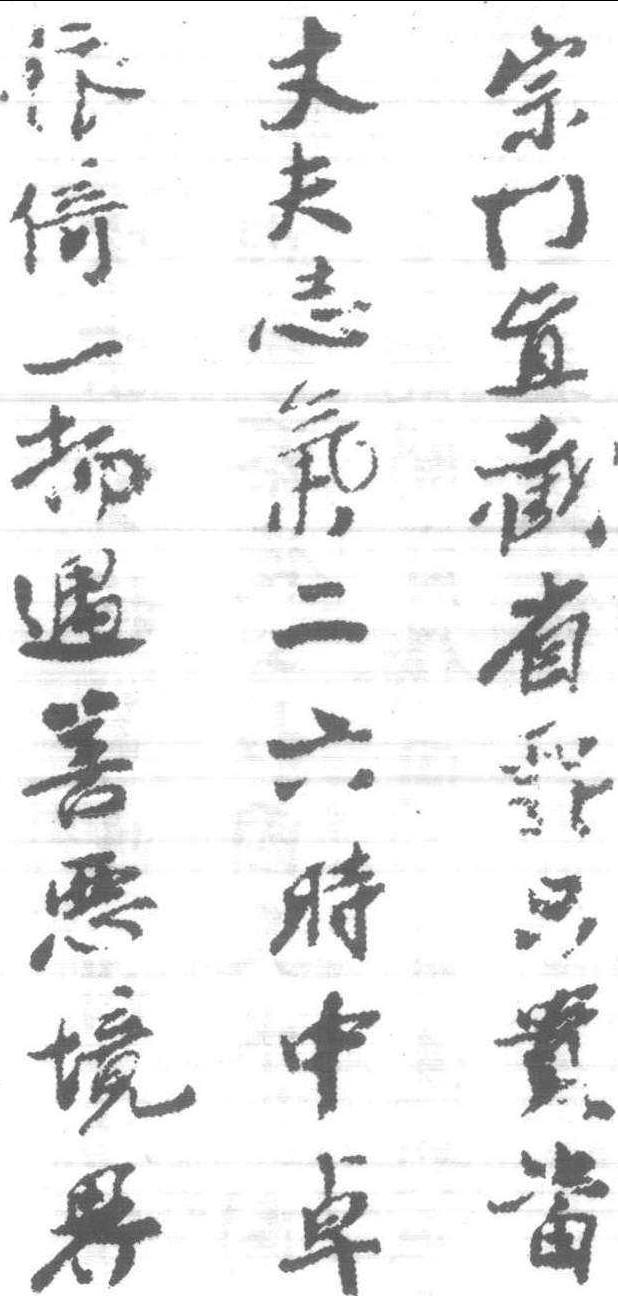 宗門直截省只貴當
丈夫志氣二六時中卓
依倚一物遇善惡境界